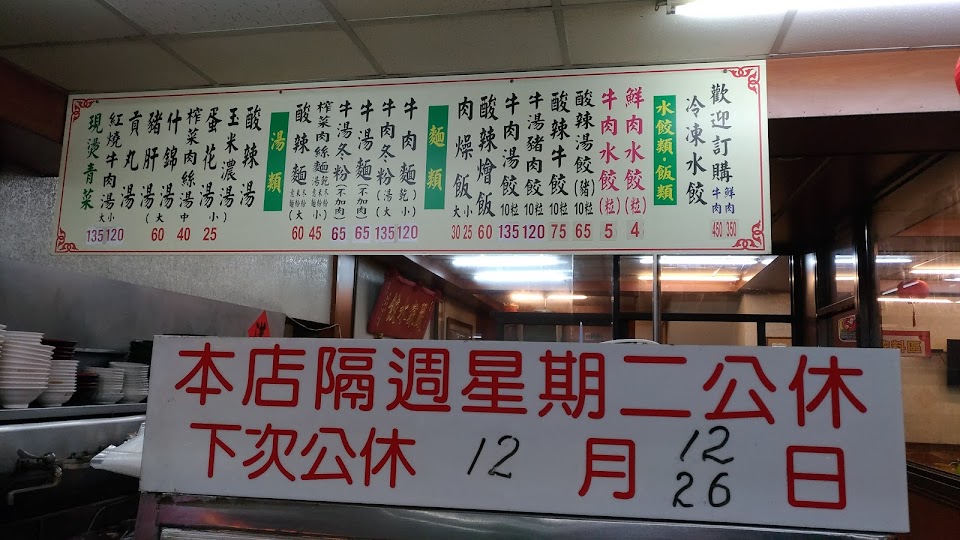 歡迎訂購
冷凍水餃
鮮肉 350
牛肉 450
水餃類·飯類
鮮肉水餃(粒) 4
牛肉水餃(粒) 5
酸辣湯餃(豬)10粒 65
酸辣牛餃10粒 75
牛湯豬肉餃10粒 120
牛肉湯餃10粒 135
酸辣燴飯 60
肉燥飯大小 30 25
麵類
牛肉麵(乾)(小) 120
牛肉冬粉(湯)(大) 135
牛湯麵(不加肉) 65
牛湯冬粉(不加肉) 65
榨菜肉絲麵 小) 45
酸辣麵 (大 60
湯類
酸辣湯
玉米濃湯
蛋花湯 小 25
榨菜肉絲湯 中 40
什錦湯
豬肝湯(大 60
貢丸湯
紅燒牛肉湯大小 135 120
現燙青菜
本店隔週星期二公休
下次公休 12 月 12 26 日